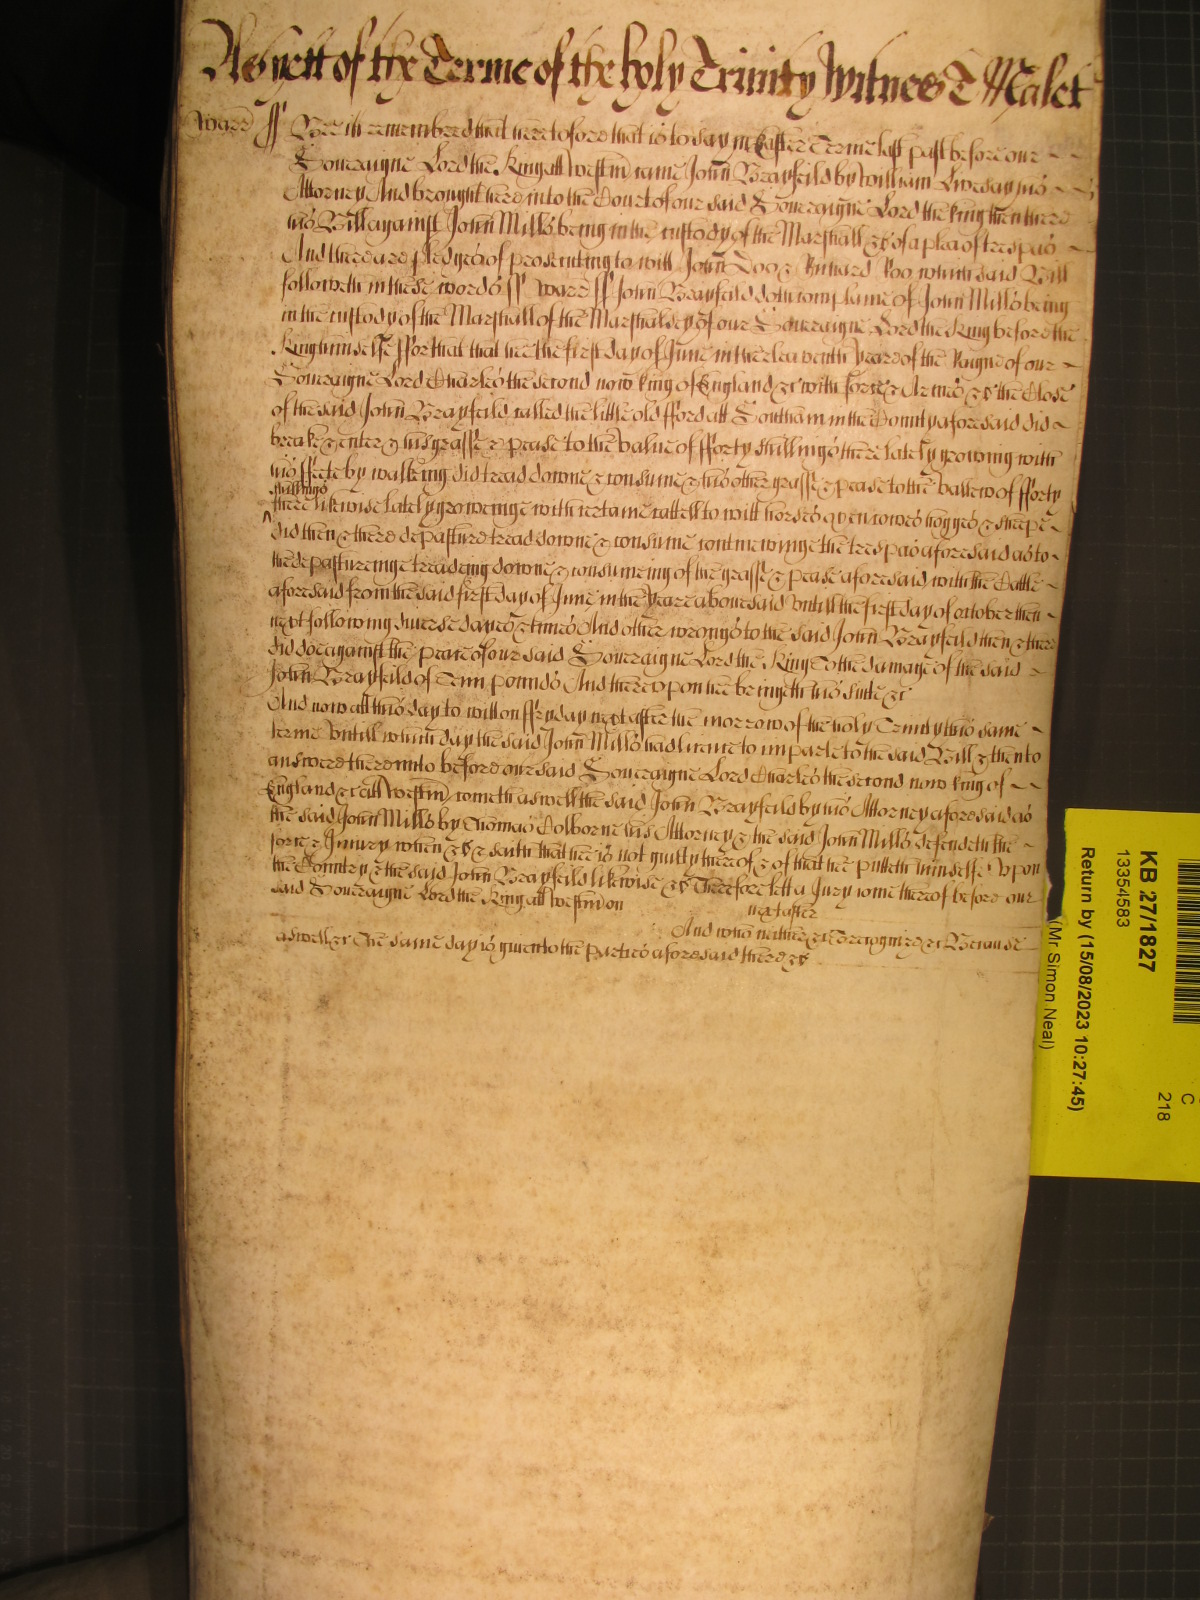 As yett of the Terme of the holy Trinity Witnes T Malet
Warr ss Bee it remembred that heretofore that is to say in Easter Terme last past before our
Soveraigne Lord the King att Westm came John Brayfeild by William Livesay his
Attorney And brought here into the Court of our said Soveraigne Lord the King then there
his Bill against John Mills being in the custody of the Marshall &c of a plea of trespas
And there are pledges of prosecuting to witt John Doo & Richard Roo which said Bill
followeth in these words ss Warr ss John Brayfeild doth complaine of John Mills being
in the custody of the Marshall of the Marshalsey of our Soveraigne Lord the King before the
King himselfe ffor that that hee the first day of June in the eleaventh yeare of the Raigne of our
Soveraigne Lord Charles the second now King of England &c with force & Armes &c the Close
of the said John Brayfeild called the little old fford att Southam in the County aforesaid did
breake & enter & his grasse & pease to the value of fforty shillings there lately growing with
his ffeete by walking did tread downe & consume & his other grasse & pease to the vallew of fforty
shillings
there likewise lately groweinge with certaine cattell to witt horses oxen cowes hogges & sheepe
did then & there depasture tread downe & consume continewinge the trespas aforesaid as to
the depastureinge treading downe & consumeing of the grasse & pease aforesaid with the Cattle
aforesaid from the said first day of June in the yeare abovesaid untill the first day of october then
next following diverse dayes & times And other wrongs to the said John Brayfeild then & there
did doe against the peace of our said Soveraigne Lord the King To the damage of the said
John Brayfeild of Tenn pounds And thereupon hee bringeth his suite &c
And now att this day to witt on ffryday next after the morrow of the holy Trinity this same
terme Untill which day the said John Mills had licence to imparle to the said Bill & then to
answere thereunto before our said Soveraigne Lord Charles the second now King of
England &c att Westm cometh aswell the said John Brayfeild by his Attorney aforesaid as
the said John Mills by Thomas Colborne his Attorney & the said John Mills defendeth the
force & Injury when &c & saith that hee is not guilty thereof & of that hee putteth himselfe Upon
the Country & the said John Brayfeild likewise &c Therefore lett a Jury come thereof before our
said Soveraigne Lord the King att Westm on next after
And who neither &c To recognize &c Because
aswell &c The same day is given to the parties aforesaid there &c
KB 27/1827
13354583
Return by (15/08/2023 10:27:45)
(Mr Simon Neal)
C
218